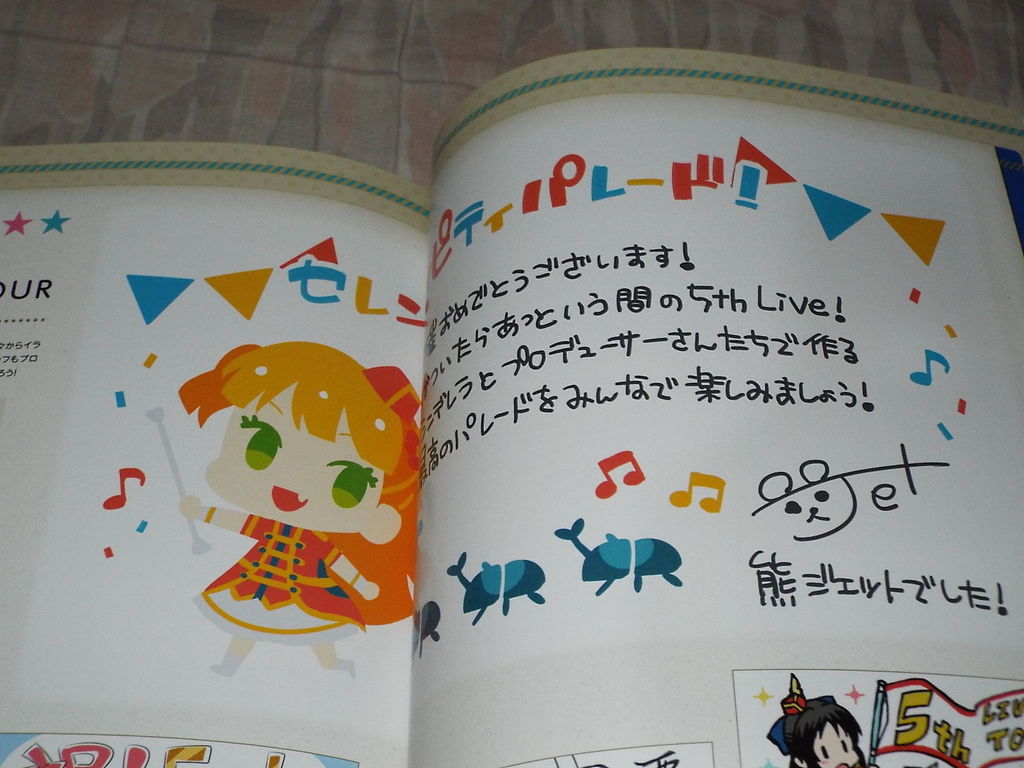 OUR
からイラ
フもプロ
ろう!
セレン
ピティパレード!
おめでとうございます!
ついたらあっという間の5th Live!
ンデレラとプロデューサーさんたちで作る
最高のパレードをみんなで楽しみましょう!
et
熊ジェットでした!
5th
LIV
TO